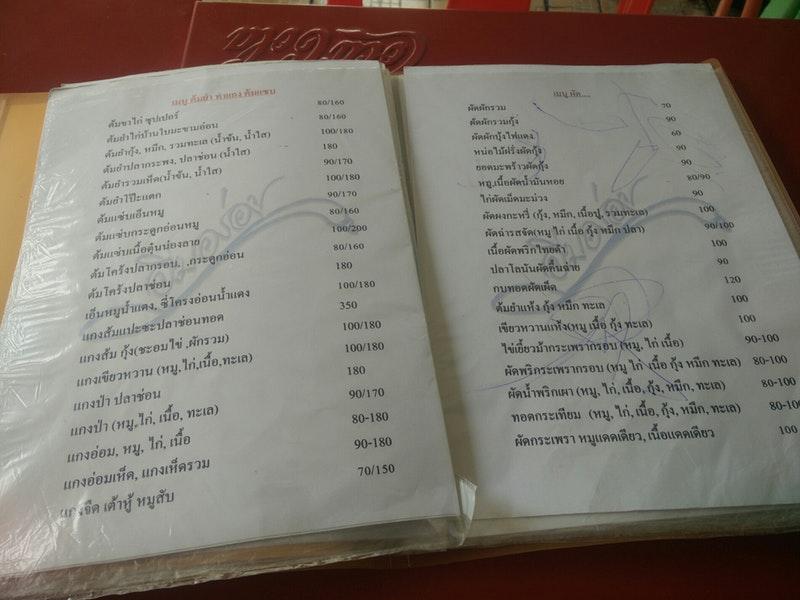 เมนู ต้มยำ ทำแกง ต้มแซบ
ต้มขาไก่ ซุปเปอร์ 80/160
ต้มยำไก่บ้านใบมะขามอ่อน 80/160
ต้มยำกุ้ง, หมึก, รวมทะเล (น้ำข้น, น้ำใส) 100/180
ต้มยำปลากระพง, ปลาช่อน (น้ำใส) 180
ต้มยำรวมเห็ด(น้ำข้น, น้ำใส) 90/170
ต้มยำโป๊ะแตก 100/180
ต้มแซ่บเอ็นหมู 90/170
ต้มแซ่บกระดูกอ่อนหมู 80/160
ต้มแซ่บเนื้อตุ๋นน่องลาย 100/200
ต้มโคร้งปลากรอบ, กระดูกอ่อน 80/160
ต้มโคร้งปลาช่อน 180
เอ็นหมูน้ำแดง, ซี่โครงอ่อนน้ำแดง 100/180
แกงส้มแปะซะปลาช่อนทอด 350
แกงส้ม กุ้ง(ชะอมไข่ ,ผักรวม) 100/180
แกงเขียวหวาน (หมู,ไก่,เนื้อ,ทะเล) 100/180
แกงป่า ปลาช่อน 180
แกงป่า (หมู,ไก่, เนื้อ, ทะเล) 90/170
แกงอ่อม, หมู, ไก่, เนื้อ 80-180
แกงอ่อมเห็ด, แกงเห็ดรวม 90-180
แกงจืด เต้าหู้ หมูสับ 70/150
เมนู ผัด....
ผัดผักรวม 70
ผัดผักรวมกุ้ง 90
ผัดผักบุ้งไฟแดง 60
หน่อไม้ฝรั่งผัดกุ้ง 90
ยอดมะพร้าวผัดกุ้ง 90
หมู,เนื้อผัดน้ำมันหอย 80/90
ไก่ผัดเม็ดมะม่วง 90
ผัดผงกะหรี่ (กุ้ง, หมึก, เนื้อปู, รวมทะเล) 100
ผัดฉ่ารสจัด(หมู ไก่ เนื้อ กุ้ง หมึก ปลา) 90/100
เนื้อผัดพริกไทยดำ 100
ปลาโลนันผัดคื่นฉ่าย 90
กบทอดผัดเผ็ด 120
ต้มยำแห้ง กุ้ง หมึก ทะเล 100
เขียวหวานแห้ง(หมู เนื้อ กุ้ง ทะเล) 100
ไข่เยี่ยวม้ากระเพรากรอบ (หมู, ไก่, เนื้อ) 90-100
ผัดพริกกระเพรากรอบ (หมู ไก่ เนื้อ กุ้ง หมึก ทะเล) 80-100
ผัดน้ำพริกเผา (หมู, ไก่, เนื้อ, กุ้ง, หมึก, ทะเล) 80-100
ทอดกระเทียม (หมู, ไก่, เนื้อ, กุ้ง, หมึก, ทะเล) 80-100
ผัดกระเพรา หมูแดดเดียว, เนื้อแดดเดียว 100